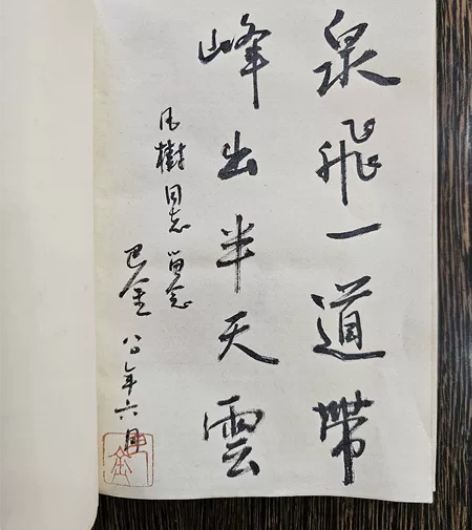 泉飛一道帶
峰出半天雲
风樹同志留念
巴金
八〇年六月
巴金